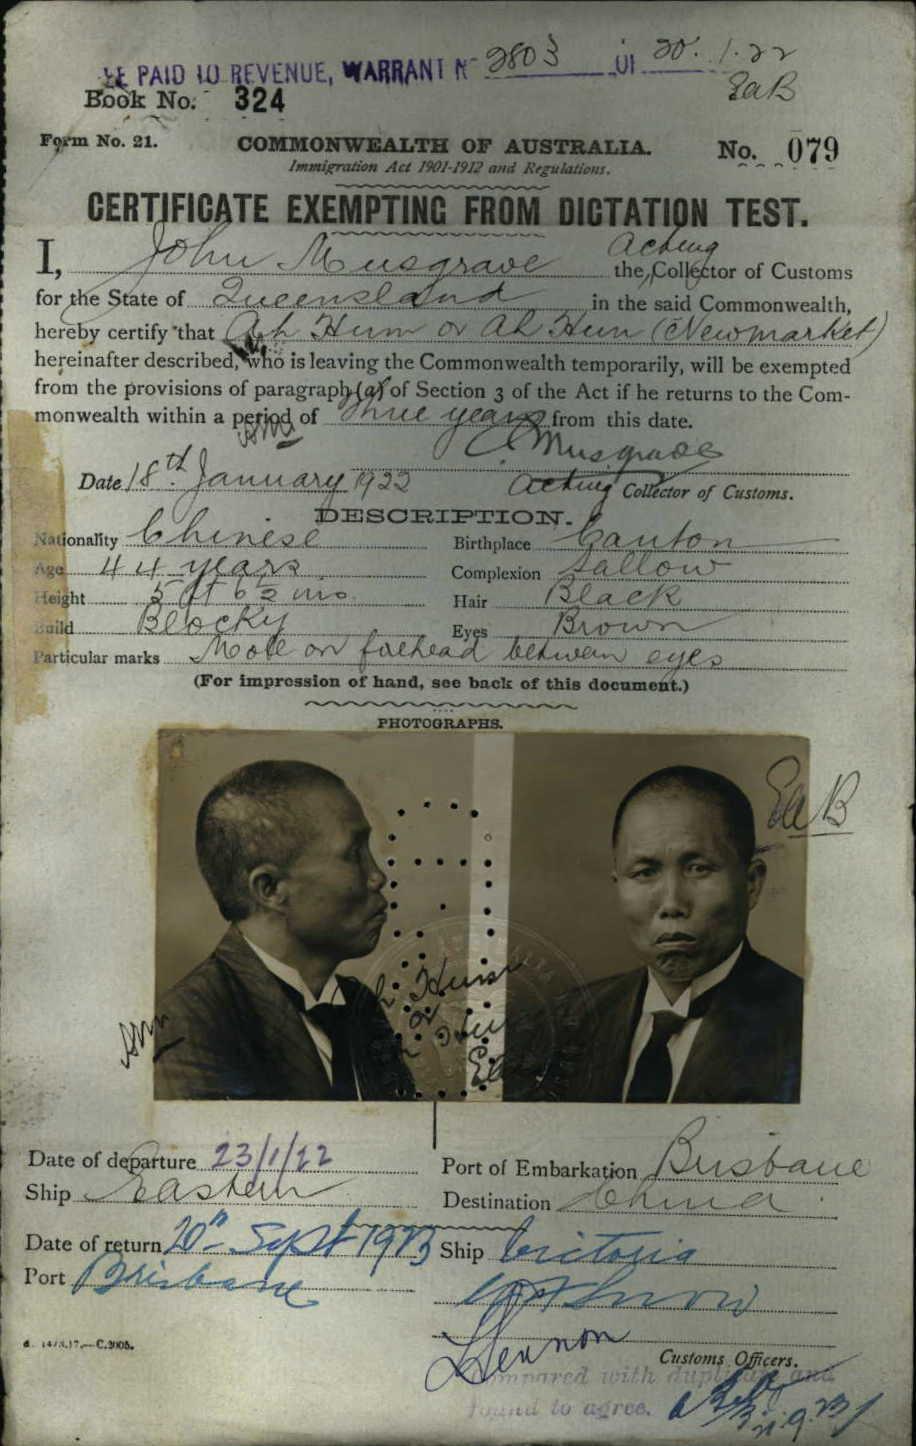 PAID TO REVENUE, WARRANT No 2803 of 20.1.22
EaB
Book No. 324
Form No. 21.
COMMONWEALTH OF AUSTRALIA.
No. 079
Immigration Act 1901-1912 and Regulations.
CERTIFICATE EXEMPTING FROM DICTATION TEST.
I, John Musgrave Acting the Collector of Customs
for the State of Queensland in the said Commonwealth,
hereby certify that Ah Hum or Ah Hun (Newmarket)
hereinafter described, who is leaving the Commonwealth temporarily, will be exempted
from the provisions of paragraph (a) of Section 3 of the Act if he returns to the Com-
monwealth within a period of three years from this date.
Musgrave
Date 18th January 1922 Acting Collector of Customs.
DESCRIPTION.
Nationality Chinese Birthplace Canton
Age 44 years Complexion Sallow
Height 5 ft 6½ ins Hair Black
Build Blocky Eyes Brown
Particular marks Mole on forehead between eyes
(For impression of hand, see back of this document.)
PHOTOGRAPHS.
EaB
Ah Hum
or
Ah Hun
Date of departure 23/1/22 Port of Embarkation Brisbane
Ship Eastern Destination China
Date of return 20th Sept 1923 Ship Victoria
Port Brisbane
C.2005.
Customs Officers.
Compared with duplicate and
found to agree.
21.9.23